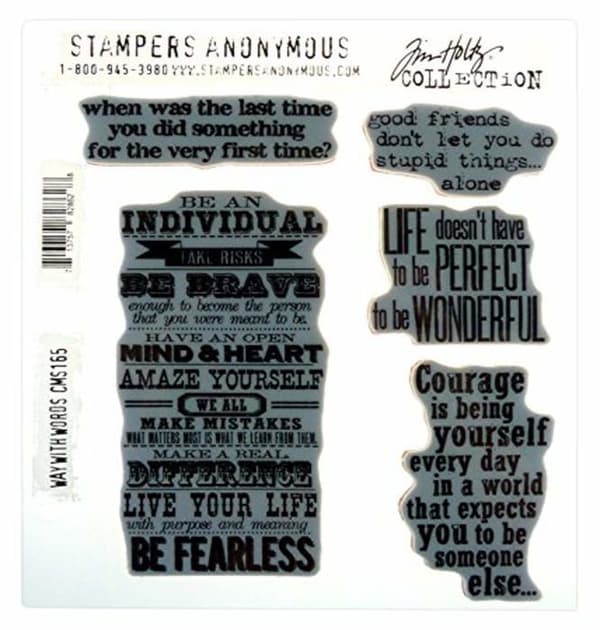 STAMPERS ANONYMOUS
1-800-945-3980 WWW.STAMPERSANONYMOUS.COM
Tim Holtz
COLLECTiON
when was the last time
you did something
for the very first time?
good friends
don't let you do
stupid things...
alone
BE AN
INDIVIDUAL
TAKE RISKS
BE BRAVE
enough to become the person
that you were meant to be.
HAVE AN OPEN
MIND & HEART
AMAZE YOURSELF
WE ALL
MAKE MISTAKES
WHAT MATTERS MOST IS WHAT WE LEARN FROM THEM.
MAKE A REAL
DIFFERENCE
LIVE YOUR LIFE
with purpose and meaning.
BE FEARLESS
LIFE doesn't have
to be PERFECT
to be WONDERFUL
Courage
is being
yourself
every day
in a world
that expects
you to be
someone
else...
WAY WITH WORDS CMS165